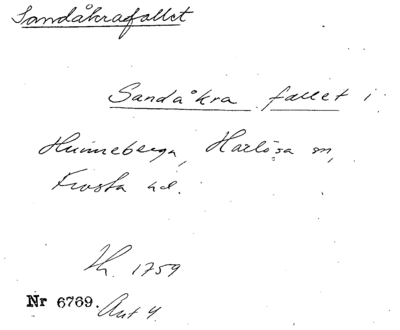 Sandåkrafallet
Sandåkra fallet i
Hunneberga, Harlösa sn,
Frosta hd.
Lh. 1759
Nr 6769. Akt 4